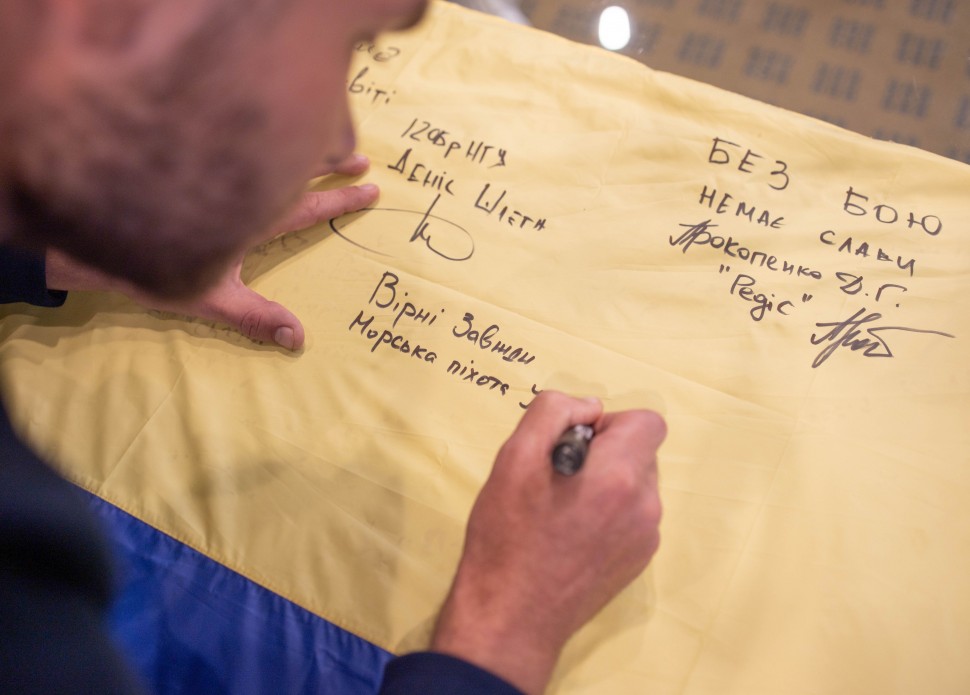 віті
12 ОБр НГУ
Деніс Шлега
БЕЗ БОЮ
НЕМАЄ СЛАВИ
Прокопенко Д.Г.
"Редіс"
Вірні Завжди
Морська піхота У